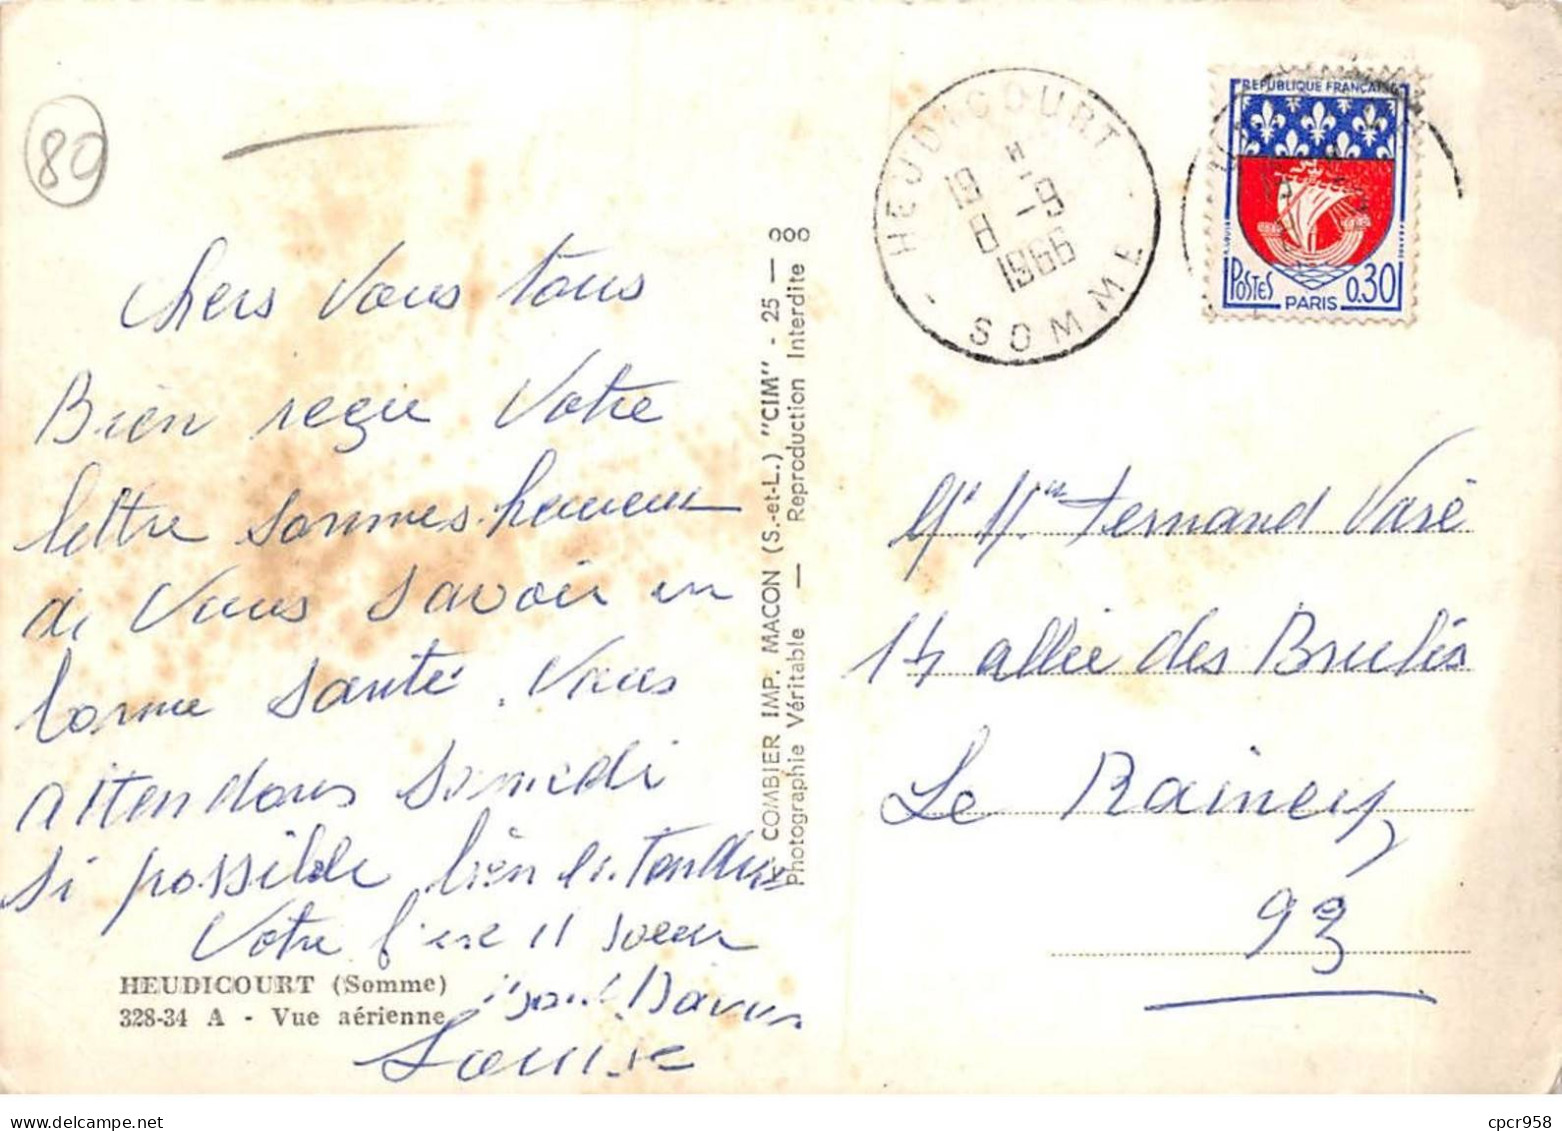 80
chers Vous tous
Bien reçue Votre
lettre sommes heureux
de Vous savoir en
bonne santé. Vous
attendons samedi
si possible bien des
Votre soeur
Louise
HEUDICOURT (Somme)
328-34 A - Vue aérienne
COMBIER IMP. MACON (S.-et-L.) "CIM" - 25 — 000
Photographie Véritable — Reproduction Interdite
HEUDICOURT
19 H
8 -9
1966
SOMME
REPUBLIQUE FRANÇAISE
POSTES PARIS 0.30
Fernand Varé
14 allée des Brulis
Le Raincy
93
cpcr958